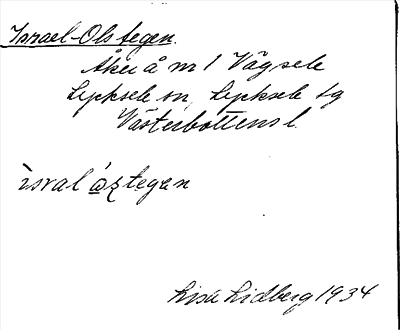 Israel-Ols tegen.
Åker å nr 1 Vägsele
Lycksele sn, Lycksele tg
Västerbottens l.
isral ọʂtegen
Lisa Lidberg 1934